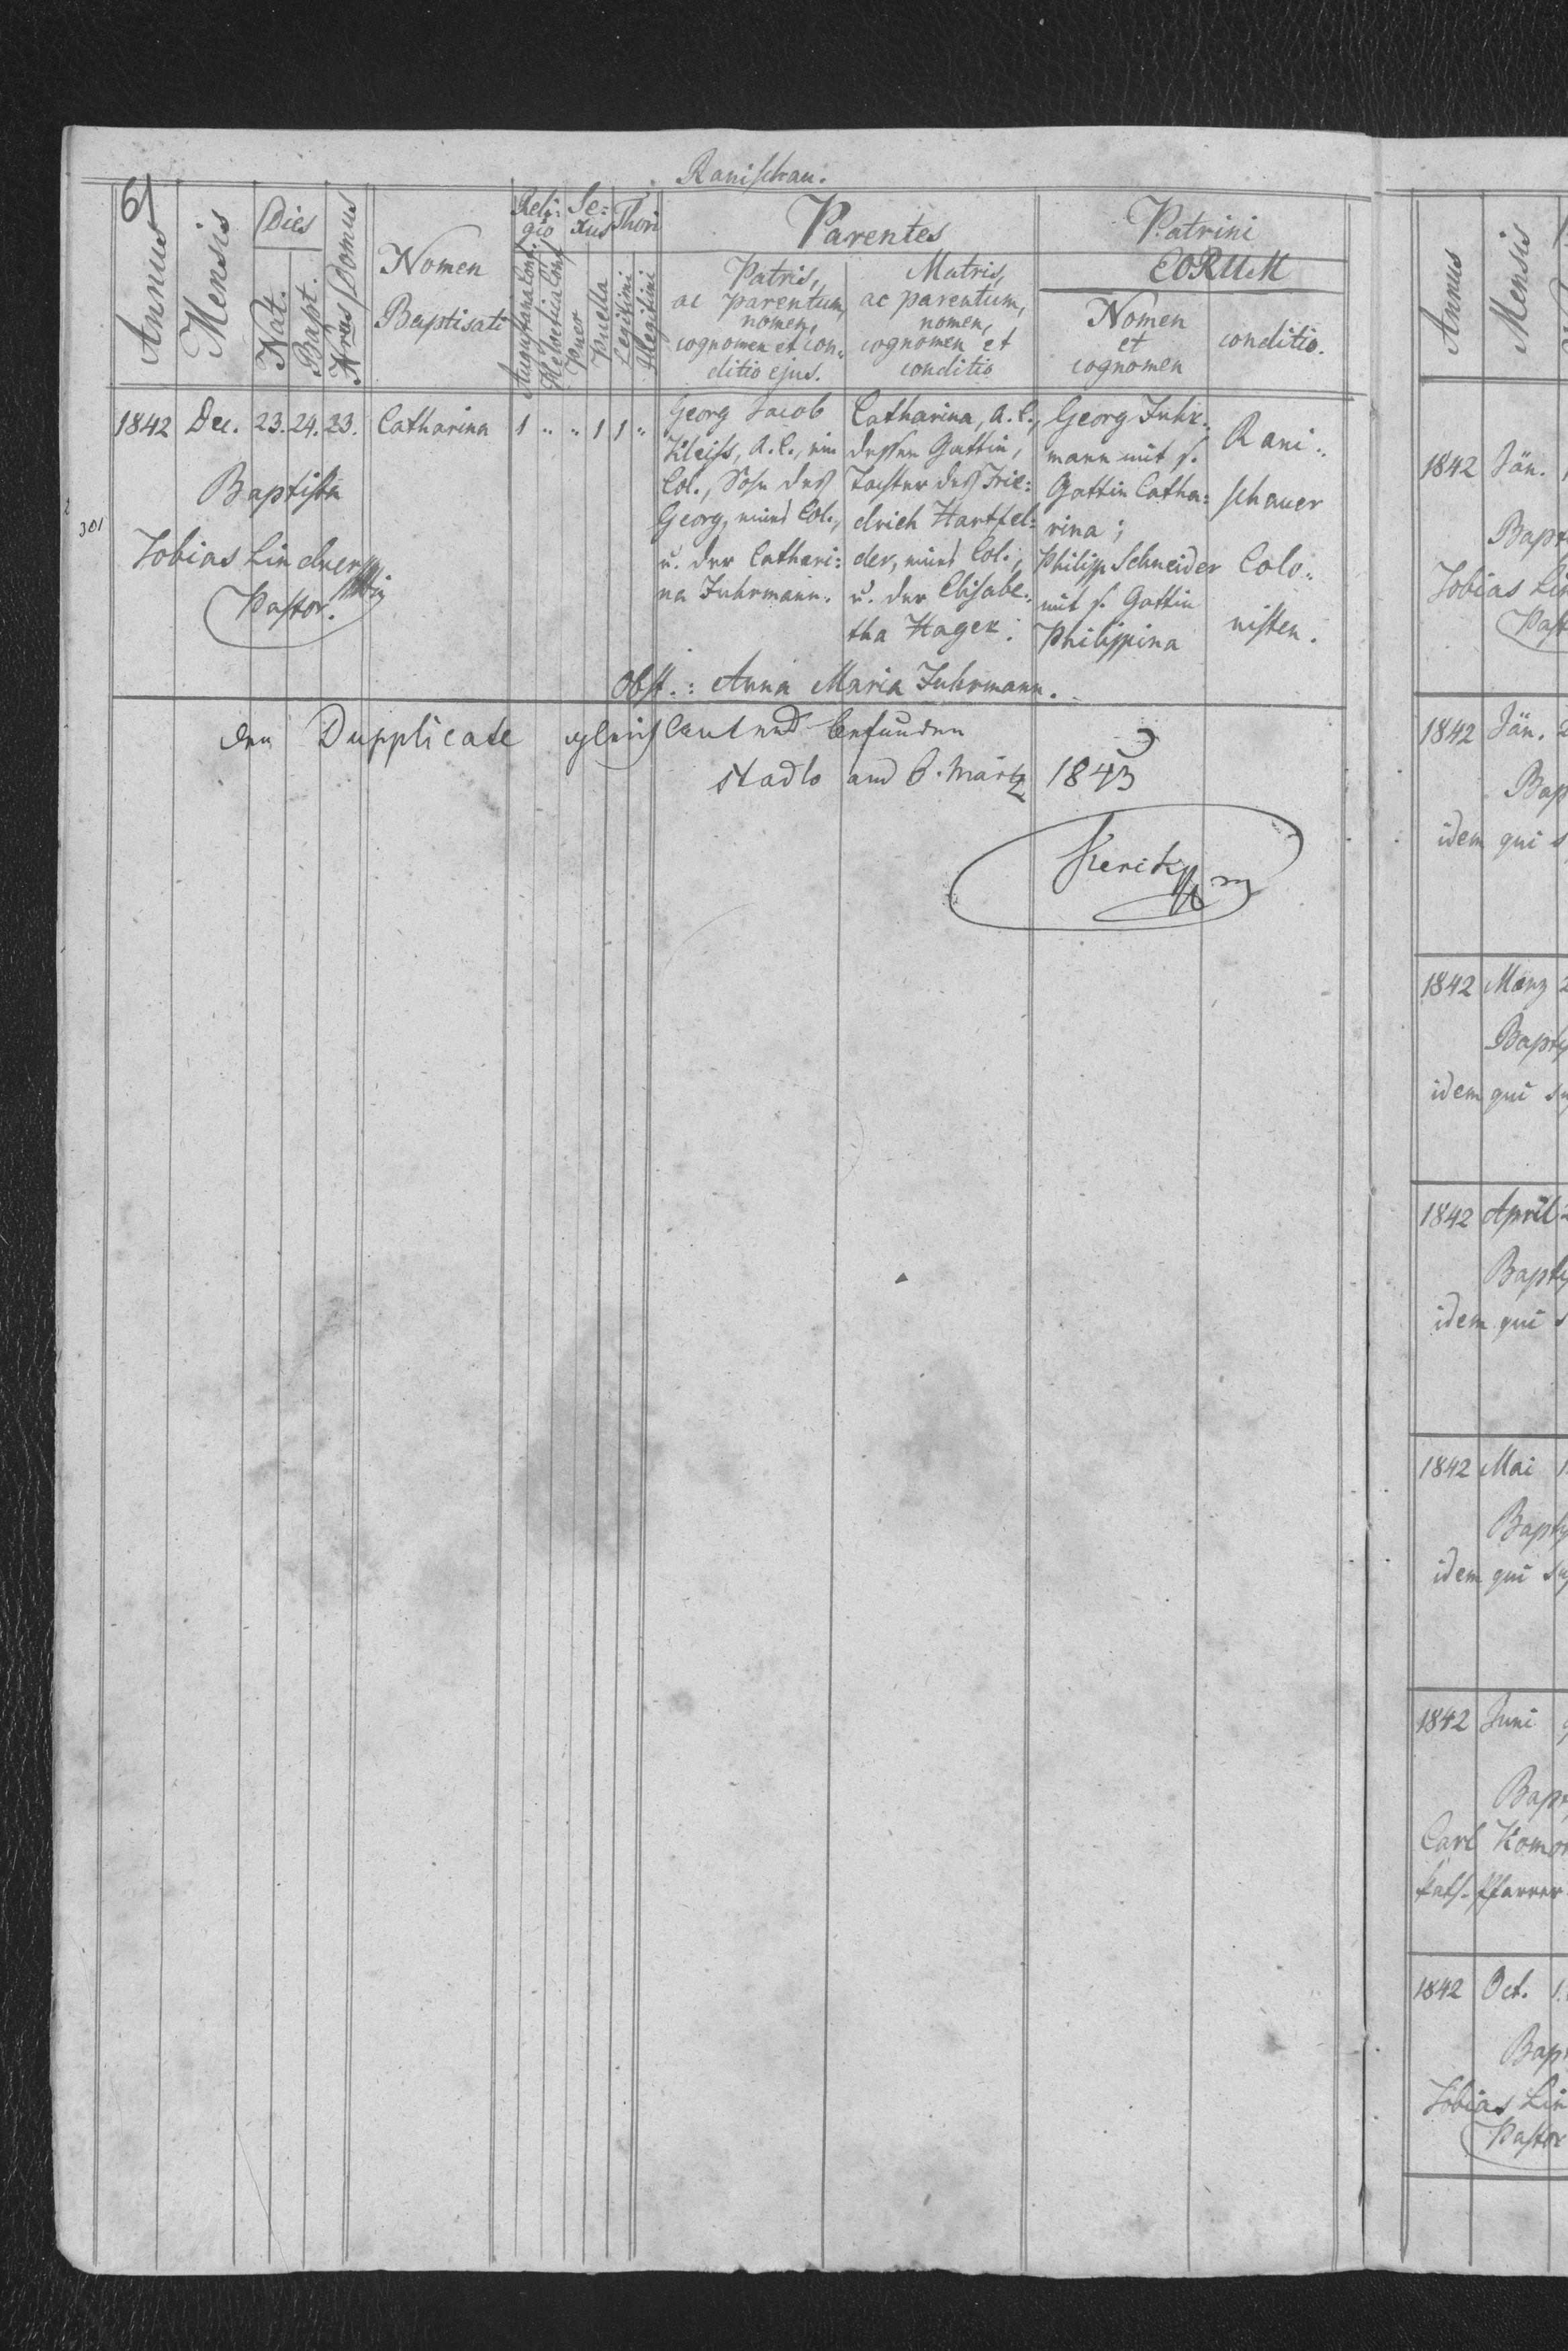 Ranischau.
61
Annus
Mensis
Dies
Nat.
Bapt.
Nrus Domus
Nomen
Baptisati
Reli:
gio
Augustana Conf.
Helvetica Conf.
Se:
xus
Puer
Puella
Thori
Legitimi
Illegitimi
Parentes
Patris,
ac parentum,
nomen,
cognomen et con„
ditio ejus.
Matris,
ac parentum,
nomen,
cognomen et
conditio
Patrini
EORUM
Nomen
et
cognomen
conditio.
1842 Dec. 23. 24. 23. Catharina 1 „ „ 1 1 „
Georg Jacob
Kleiss, A. C., ein
Col., Sohn des
Georg, eines Col.,
u. der Cathari:
na Fuhrmann.
Catharina, A. C.,
dessen Gattin,
Tochter des Frie:
drich Hartfel:
der, eines Col.,
u. der Elisabe:
tha Hager.
Georg Fuhr„
mann mit s.
Gattin Catha:
rina;
Philipp Schneider
mit s. Gattin
Philippina
Rani„
schauer
Colo„
nisten.
Baptista
301
Tobias Lindner
Pastor.
Obst.: Anna Maria Fuhrmann.
den Dupplicate gleichlautend befunden
Stadlo am 6. Märtz 1843
Annus
Mensis
1842 Jän.
Bapt
Tobias Lin
Past
1842 Jän. 2
Bap
idem qui s
1842 März 2
Bapty
idem qui su
1842 April 2
Bapty
idem qui s
1842 Mai 1
Bapty
idem qui su
1842 Juni 9
Bapt
Carl Komor
kath. Pfarrer
1842 Oct. 1
Bap
Tobias Lin
Pastor